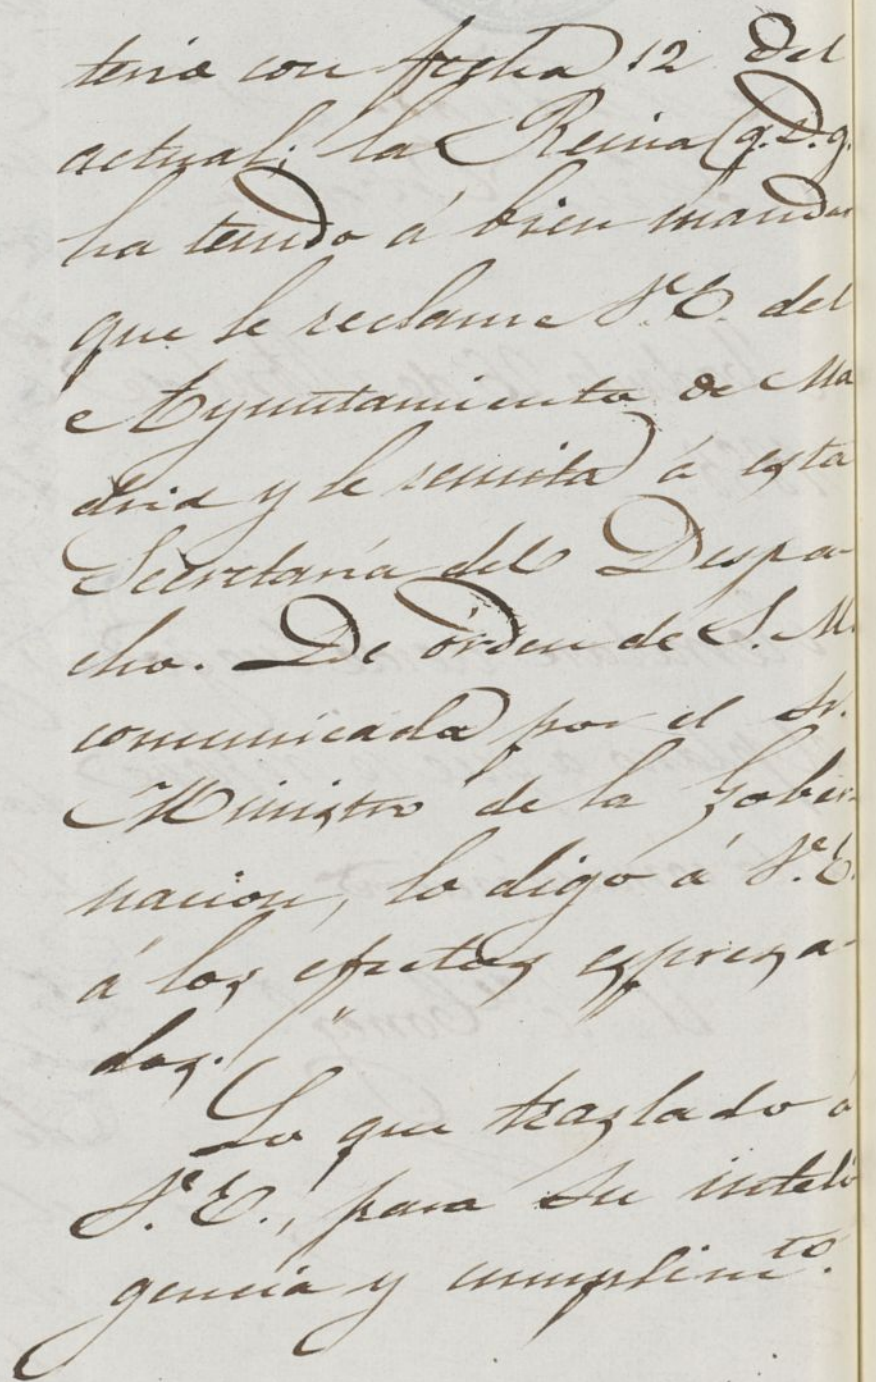 teria con fecha 12 del
actual; la Reina (q.D.g.
ha tenido á bien mandar
que le reclame V.E. del
Ayuntamiento de Ma
drid y le remita á esta
Secretaría del Despa-
cho. De órden de S. M.
comunicada por el Sr.
Ministro de la Gober-
nacion, lo digo á V.E.
á los efectos espresa-
dos."
Lo que traslado á
V.E., para su inteli
gencia y cumplimto.